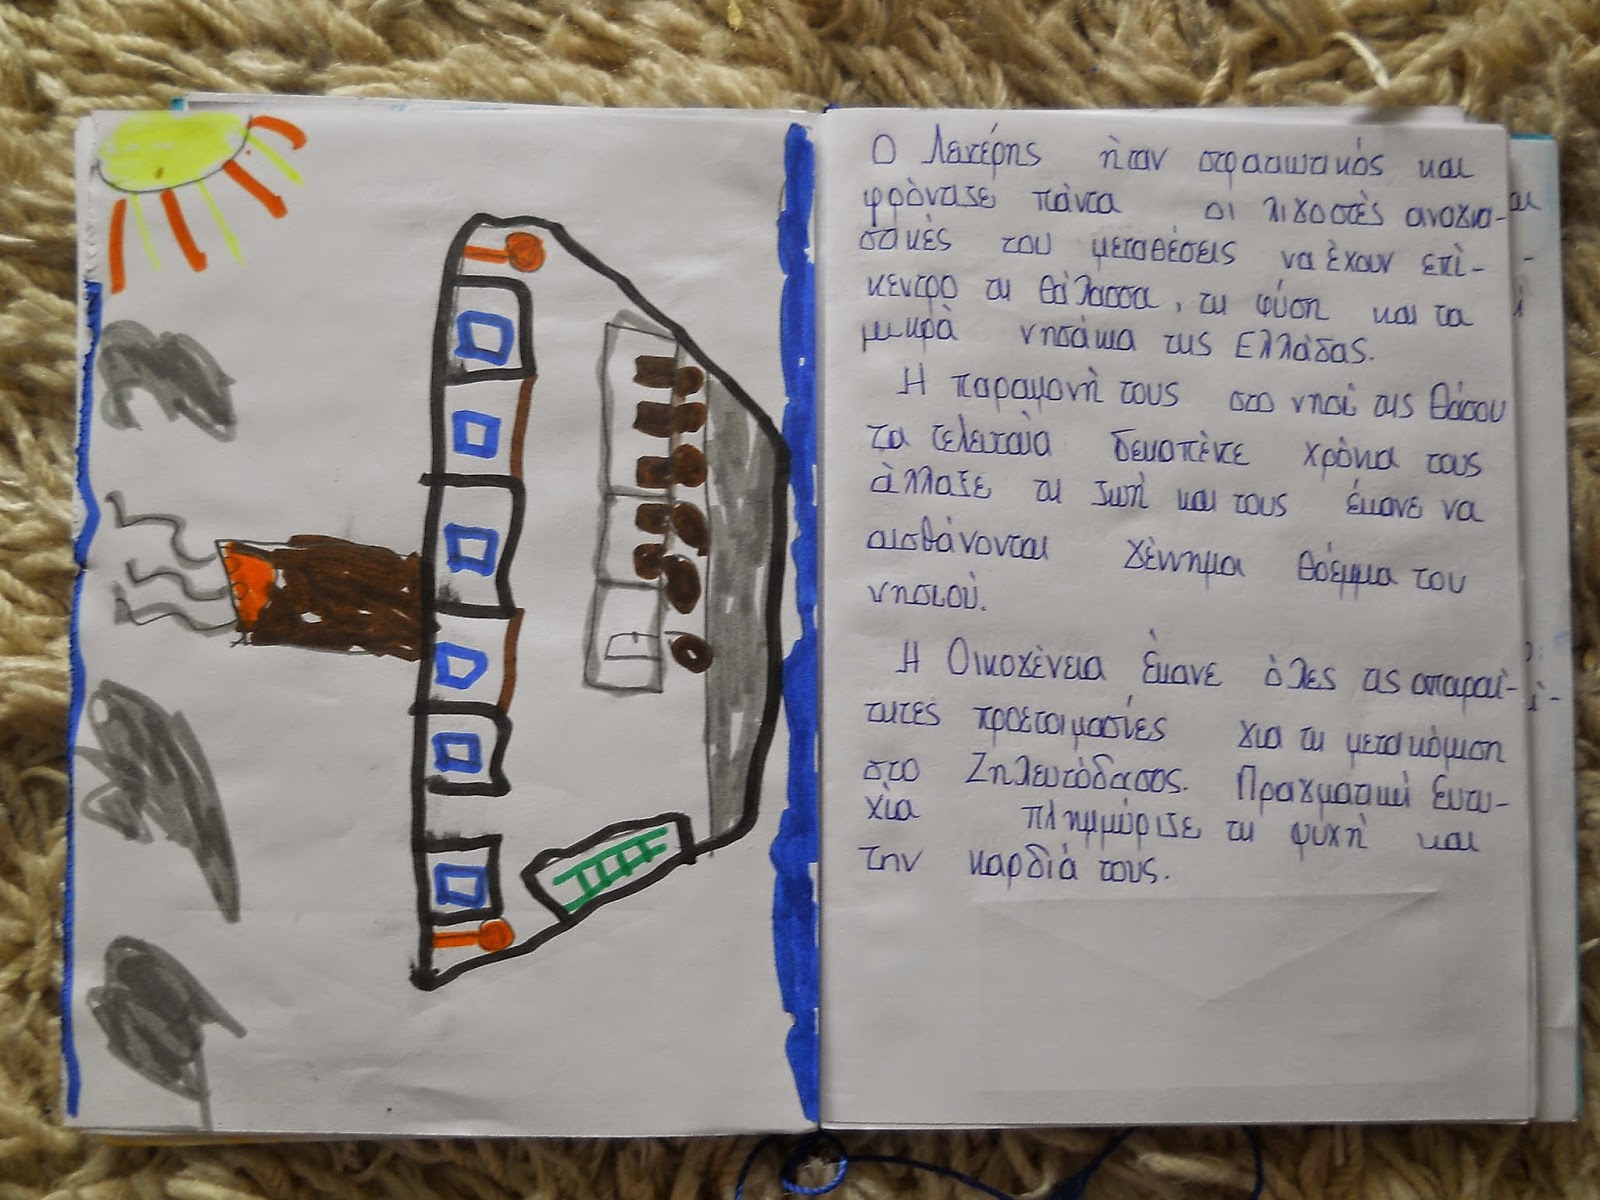 Ο Λευτέρης ήταν στρατιωτικός και
φρόντιζε πάντα οι λιγοστές αναγκα-
στικές του μεταθέσεις να έχουν επί-
κεντρο τη θάλασσα, τη φύση και τα
μικρά νησάκια της Ελλάδας.
Η παραμονή τους στο νησί της Θάσου
τα τελευταία δεκαπέντε χρόνια τους
άλλαξε τη ζωή και τους έκανε να
αισθάνονται γέννημα θρέμμα του
νησιού.
Η Οικογένεια έκανε όλες τις απαραί-
τητες προετοιμασίες για τη μετακόμιση
στο Ζηλευτόδασος. Πραγματική Ευτυ-
χία πλημμύρισε τη ψυχή και
την καρδιά τους.